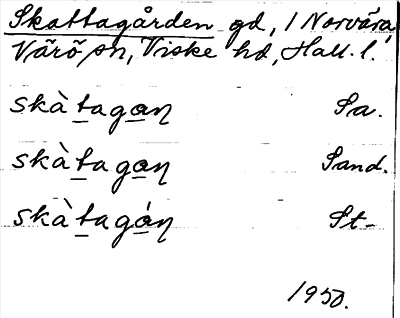 Skattagården gd, 1 Norvära,
Värö sn, Viske hd, Hall. l.
skàtagan̥ Sa.
skàtagan̥ Sand.
skàtagán̥ St-
1950.